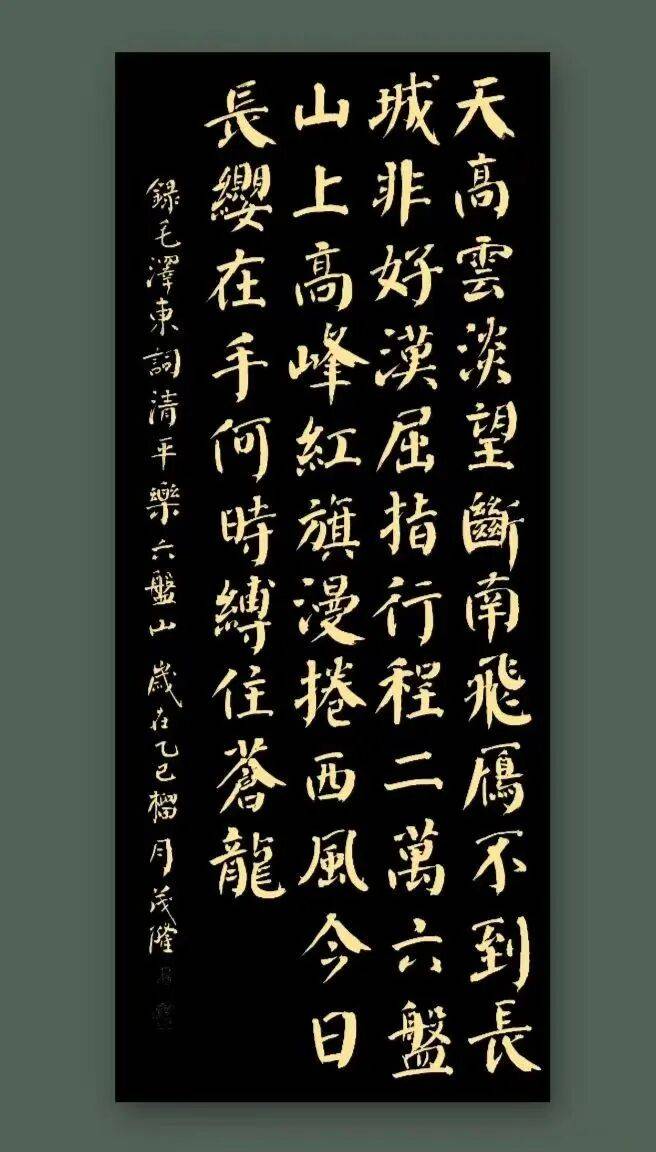 天高雲淡望斷南飛鴈不到長
城非好漢屈指行程二萬六盤
山上高峰紅旗漫捲西風今日
長纓在手何時縛住蒼龍
錄毛澤東詞清平樂六盤山歲在乙巳榴月茂隆